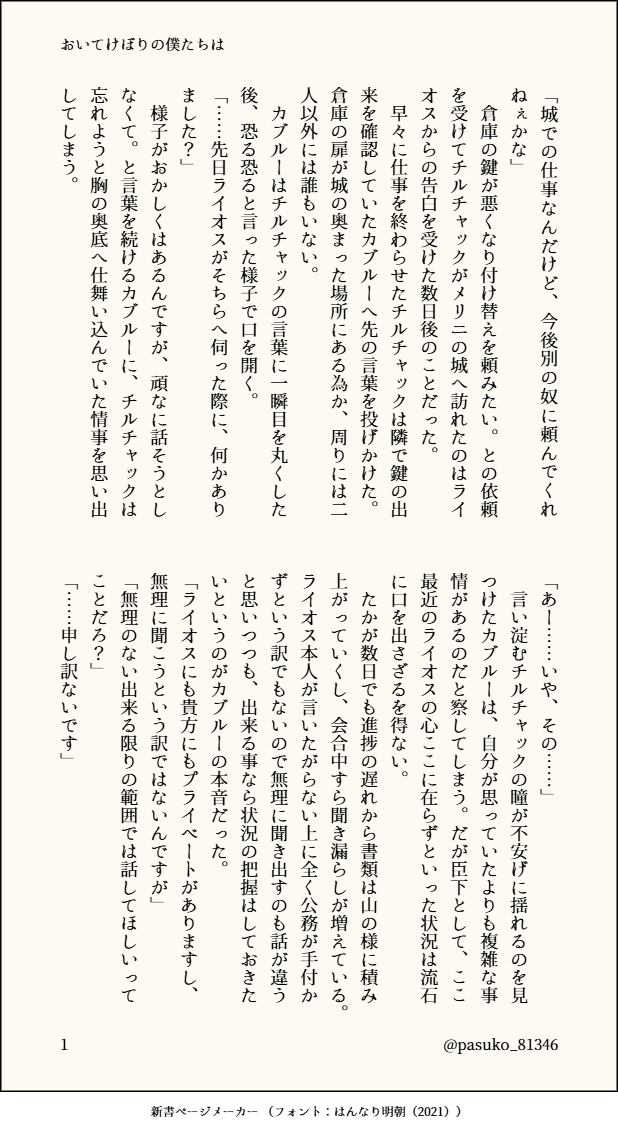 おいてけぼりの僕たちは
「城での仕事なんだけど、今後別の奴に頼んでくれ
ねぇかな」
　倉庫の鍵が悪くなり付け替えを頼みたい。との依頼
を受けてチルチャックがメリニの城へ訪れたのはライ
オスからの告白を受けた数日後のことだった。
　早々に仕事を終わらせたチルチャックは隣で鍵の出
来を確認していたカブルーへ先の言葉を投げかけた。
倉庫の扉が城の奥まった場所にある為か、周りには二
人以外には誰もいない。
　カブルーはチルチャックの言葉に一瞬目を丸くした
後、恐る恐ると言った様子で口を開く。
「……先日ライオスがそちらへ伺った際に、何かあり
ました？」
　様子がおかしくはあるんですが、頑なに話そうとし
なくて。と言葉を続けるカブルーに、チルチャックは
忘れようと胸の奥底へ仕舞い込んでいた情事を思い出
してしまう。
「あー……いや、その……」
　言い淀むチルチャックの瞳が不安げに揺れるのを見
つけたカブルーは、自分が思っていたよりも複雑な事
情があるのだと察してしまう。だが臣下として、ここ
最近のライオスの心ここに在らずといった状況は流石
に口を出さざるを得ない。
　たかが数日でも進捗の遅れから書類は山の様に積み
上がっていくし、会合中すら聞き漏らしが増えている。
ライオス本人が言いたがらない上に全く公務が手付か
ずという訳でもないので無理に聞き出すのも話が違う
と思いつつも、出来る事なら状況の把握はしておきた
いというのがカブルーの本音だった。
「ライオスにも貴方にもプライベートがありますし、
無理に聞こうという訳ではないんですが」
「無理のない出来る限りの範囲では話してほしいって
ことだろ？」
「……申し訳ないです」
1
@pasuko_81346
新書ページメーカー（フォント：はんなり明朝（2021））